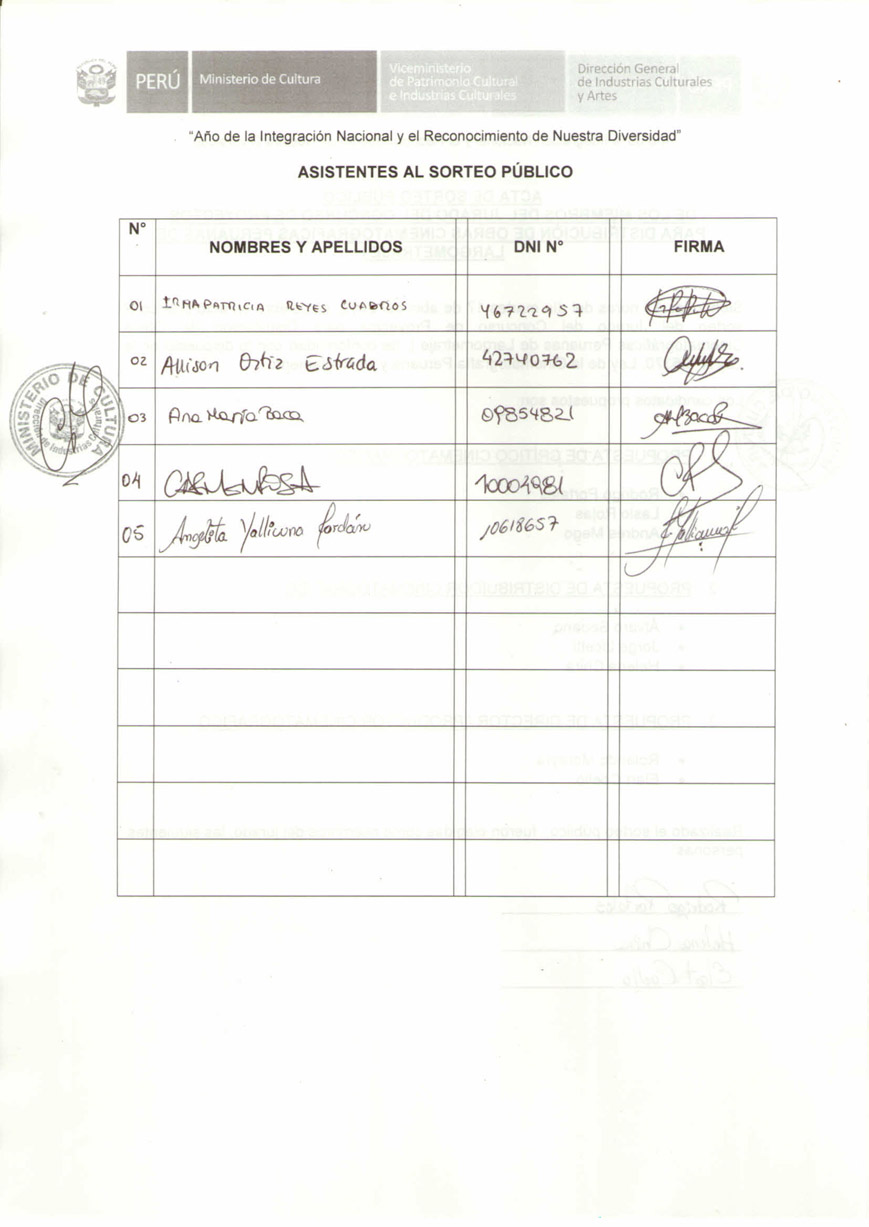 PERÚ
Ministerio de Cultura
Viceministerio
de Patrimonio Cultural
e Industrias Culturales
Dirección General
de Industrias Culturales
y Artes
“Año de la Integración Nacional y el Reconocimiento de Nuestra Diversidad”
ASISTENTES AL SORTEO PÚBLICO
N° NOMBRES Y APELLIDOS DNI N° FIRMA
01 IRMA PATRICIA REYES CUADROS 46722957
02 Allison Ortiz Estrada 42740762
03 Ana María Baca 09854821
04 CARMEN ROSA 10004981
05 Angelita Yallicuna Jordán 10618657
MINISTERIO DE CULTURA